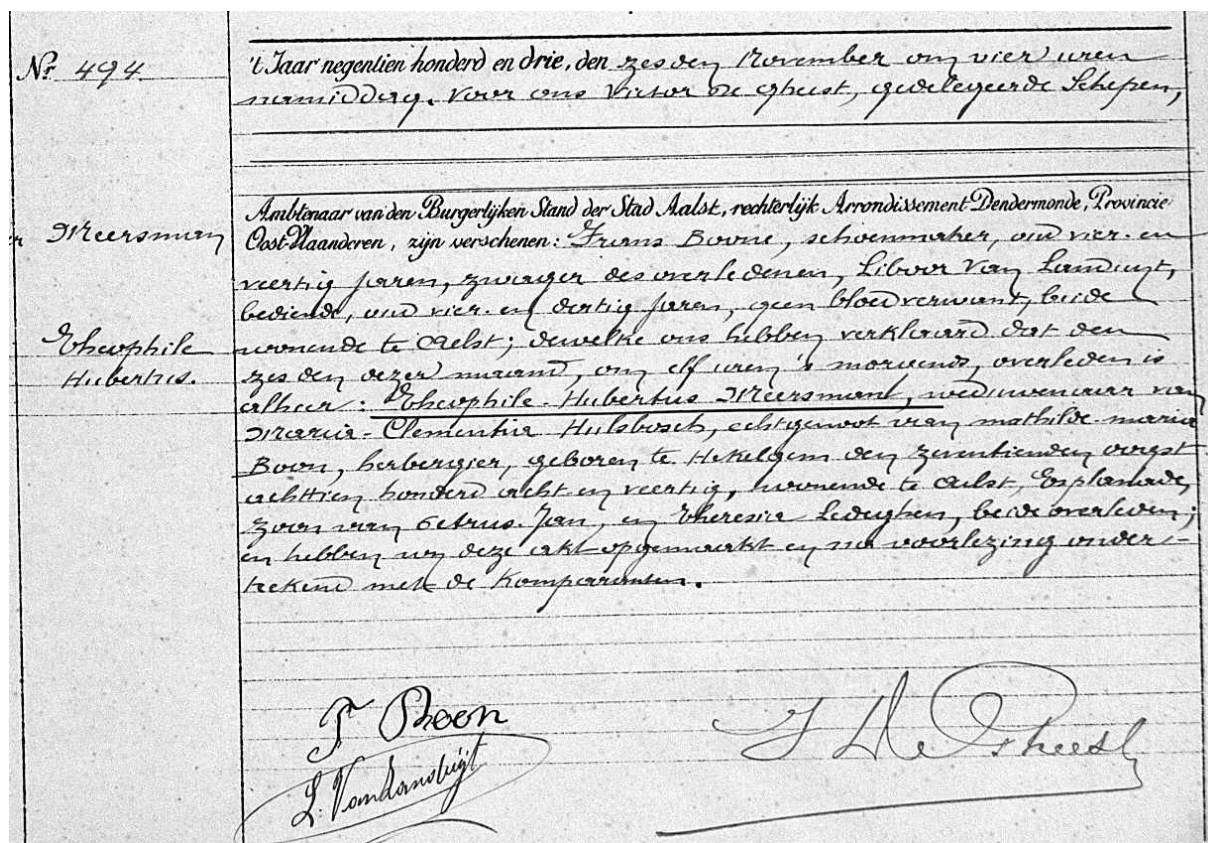 Nr. 494.
't Jaar negentien honderd en drie, den zesden November om vier uren
namiddag. Voor ons Victor De Gheest, gedelegeerde Schepen,
Ambtenaar van den Burgerlijken Stand der Stad Aalst, rechterlijk Arrondissement Dendermonde, Provincie
Meersman
Oost-Vlaanderen, zijn verschenen: Frans Boone, schoenmaker, oud vier-en
veertig jaren, zwager des overledenen, Liboor Van Landuyt,
bediende, oud vier-en dertig jaren, geen bloedverwant, beide
Theophile
wonende te Aelst; dewelke ons hebben verklaard dat den
Hubertus.
zesden dezer maand, om elf uren 's morgends, overleden is
alhier: Theophile-Hubertus Meersmant, weduwenaar van
Maria-Clementia Hulsbosch, echtgenoot van Mathilde-Maria
Boon, herbergier, geboren te Hekelgem den zeventienden oogst
achttien honderd acht-en veertig, wonende te Aelst, Esplanade,
zoon van Petrus-Jan, en Theresia Ledeghen, beide overleden;
en hebben wij deze akt opgemaakt en na voorlezing onder-
teekend met de Komparanten.
F Boon
L. Vanlanduijt
V De Gheest